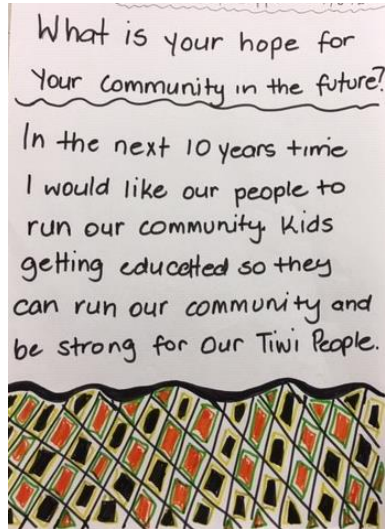 What is your hope for
Your Community in the future?
In the next 10 years time
I would like our people to
run our community. Kids
getting educatted so they
can run our community and
be strong for Our Tiwi People.